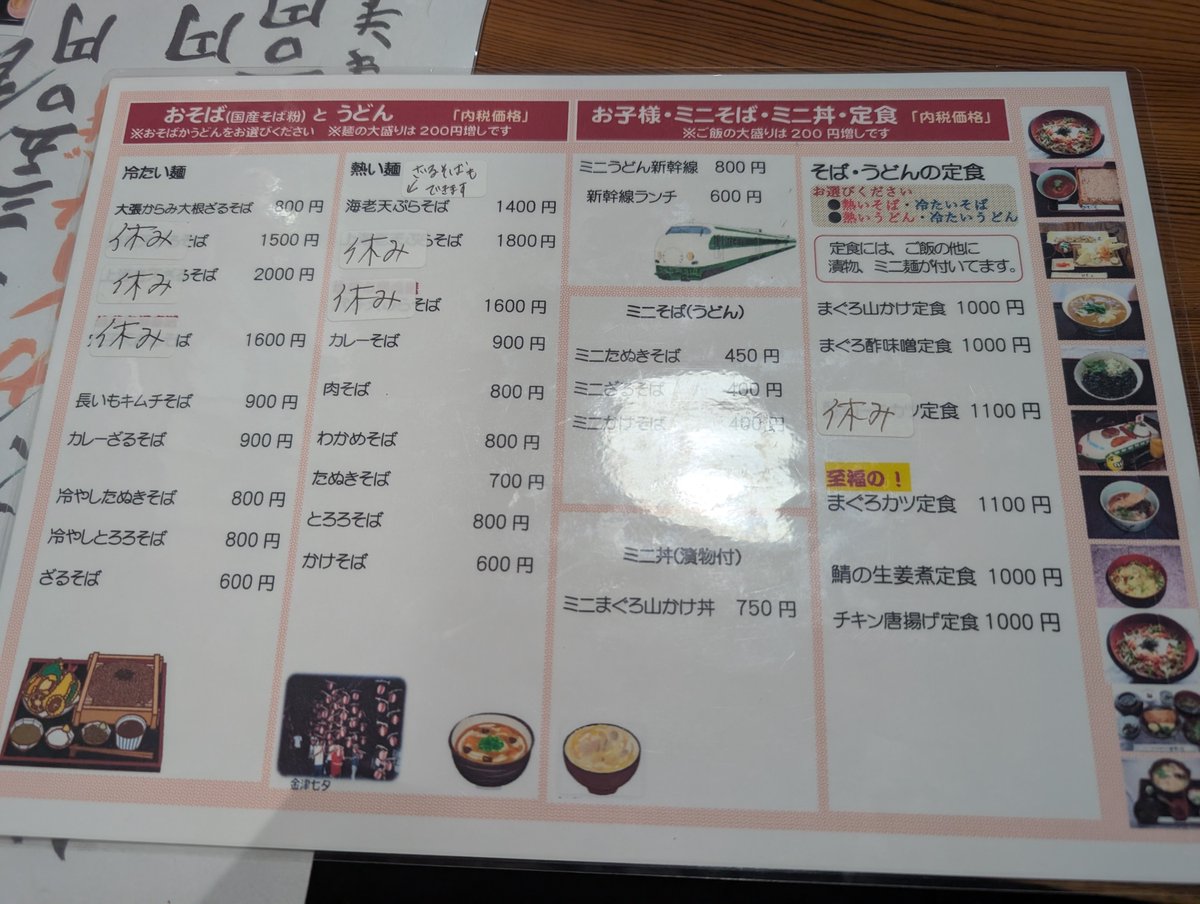 おそば(国産そば粉)と うどん 「内税価格」
※おそばかうどんをお選びください ※麺の大盛りは200円増しです
冷たい麺
大張からみ大根ざるそば 800円
休み ば 1500円
休み そば 2000円
休み ば 1600円
長いもキムチそば 900円
カレーざるそば 900円
冷やしたぬきそば 800円
冷やしとろろそば 800円
ざるそば 600円
熱い麺
ざるそばも
できます
海老天ぷらそば 1400円
休み そば 1800円
休み そば 1600円
カレーそば 900円
肉そば 800円
わかめそば 800円
たぬきそば 700円
とろろそば 800円
かけそば 600円
金津七夕
お子様・ミニそば・ミニ丼・定食 「内税価格」
※ご飯の大盛りは200円増しです
ミニうどん新幹線 800円
新幹線ランチ 600円
ミニそば(うどん)
ミニたぬきそば 450円
ミニざるそば 400円
ミニかけそば 400円
ミニ丼(漬物付)
ミニまぐろ山かけ丼 750円
そば・うどんの定食
お選びください
●熱いそば・冷たいそば
●熱いうどん・冷たいうどん
定食には、ご飯の他に
漬物、ミニ麺が付いてます。
まぐろ山かけ定食 1000円
まぐろ酢味噌定食 1000円
休み ツ定食 1100円
至福の!
まぐろカツ定食 1100円
鯖の生姜煮定食 1000円
チキン唐揚げ定食 1000円